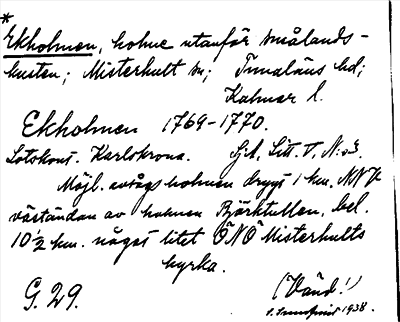 *
Ekholmen, holme utanför Smålands-
kusten; Misterhult sn; Tunaläns hd;
Kalmar l.
Ekholmen 1769-1770.
Lotskont. Karlskrona. Sjk, Litt. V, N:o 3.
Möjl. avsågs holmen drygt 1 km. NNV
väständan av holmen Björktullen, bel.
10 1/2 km. något litet ÖNÖ Misterhults
kyrka.
G. 29.
(Vänd!)
1938.